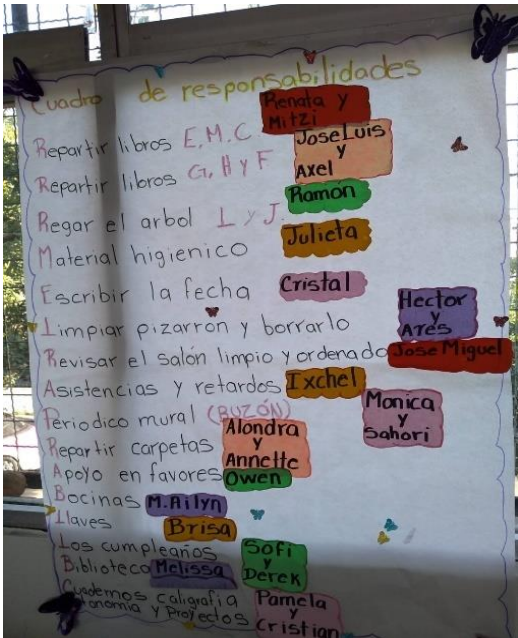 Cuadro de responsabilidades
Repartir libros E, M, C. Renata y Mitzi
Repartir libros G, H y F Jose Luis y Axel
Regar el arbol L y J. Ramon
Material higienico Julieta
Escribir la fecha Cristal
Limpiar pizarron y borrarlo Hector y Ares
Revisar el salón limpio y ordenado Jose Miguel
Asistencias y retardos Ixchel
Periodico mural (BUZÓN) Monica y Sahori
Repartir carpetas Alondra y Annette
Apoyo en favores Owen
Bocinas M.Ailyn
Llaves Brisa
Los cumpleaños Sofi y Derek
Biblioteca Melissa
Cuadernos caligrafia Pamela y
onomia y proyectos Cristian